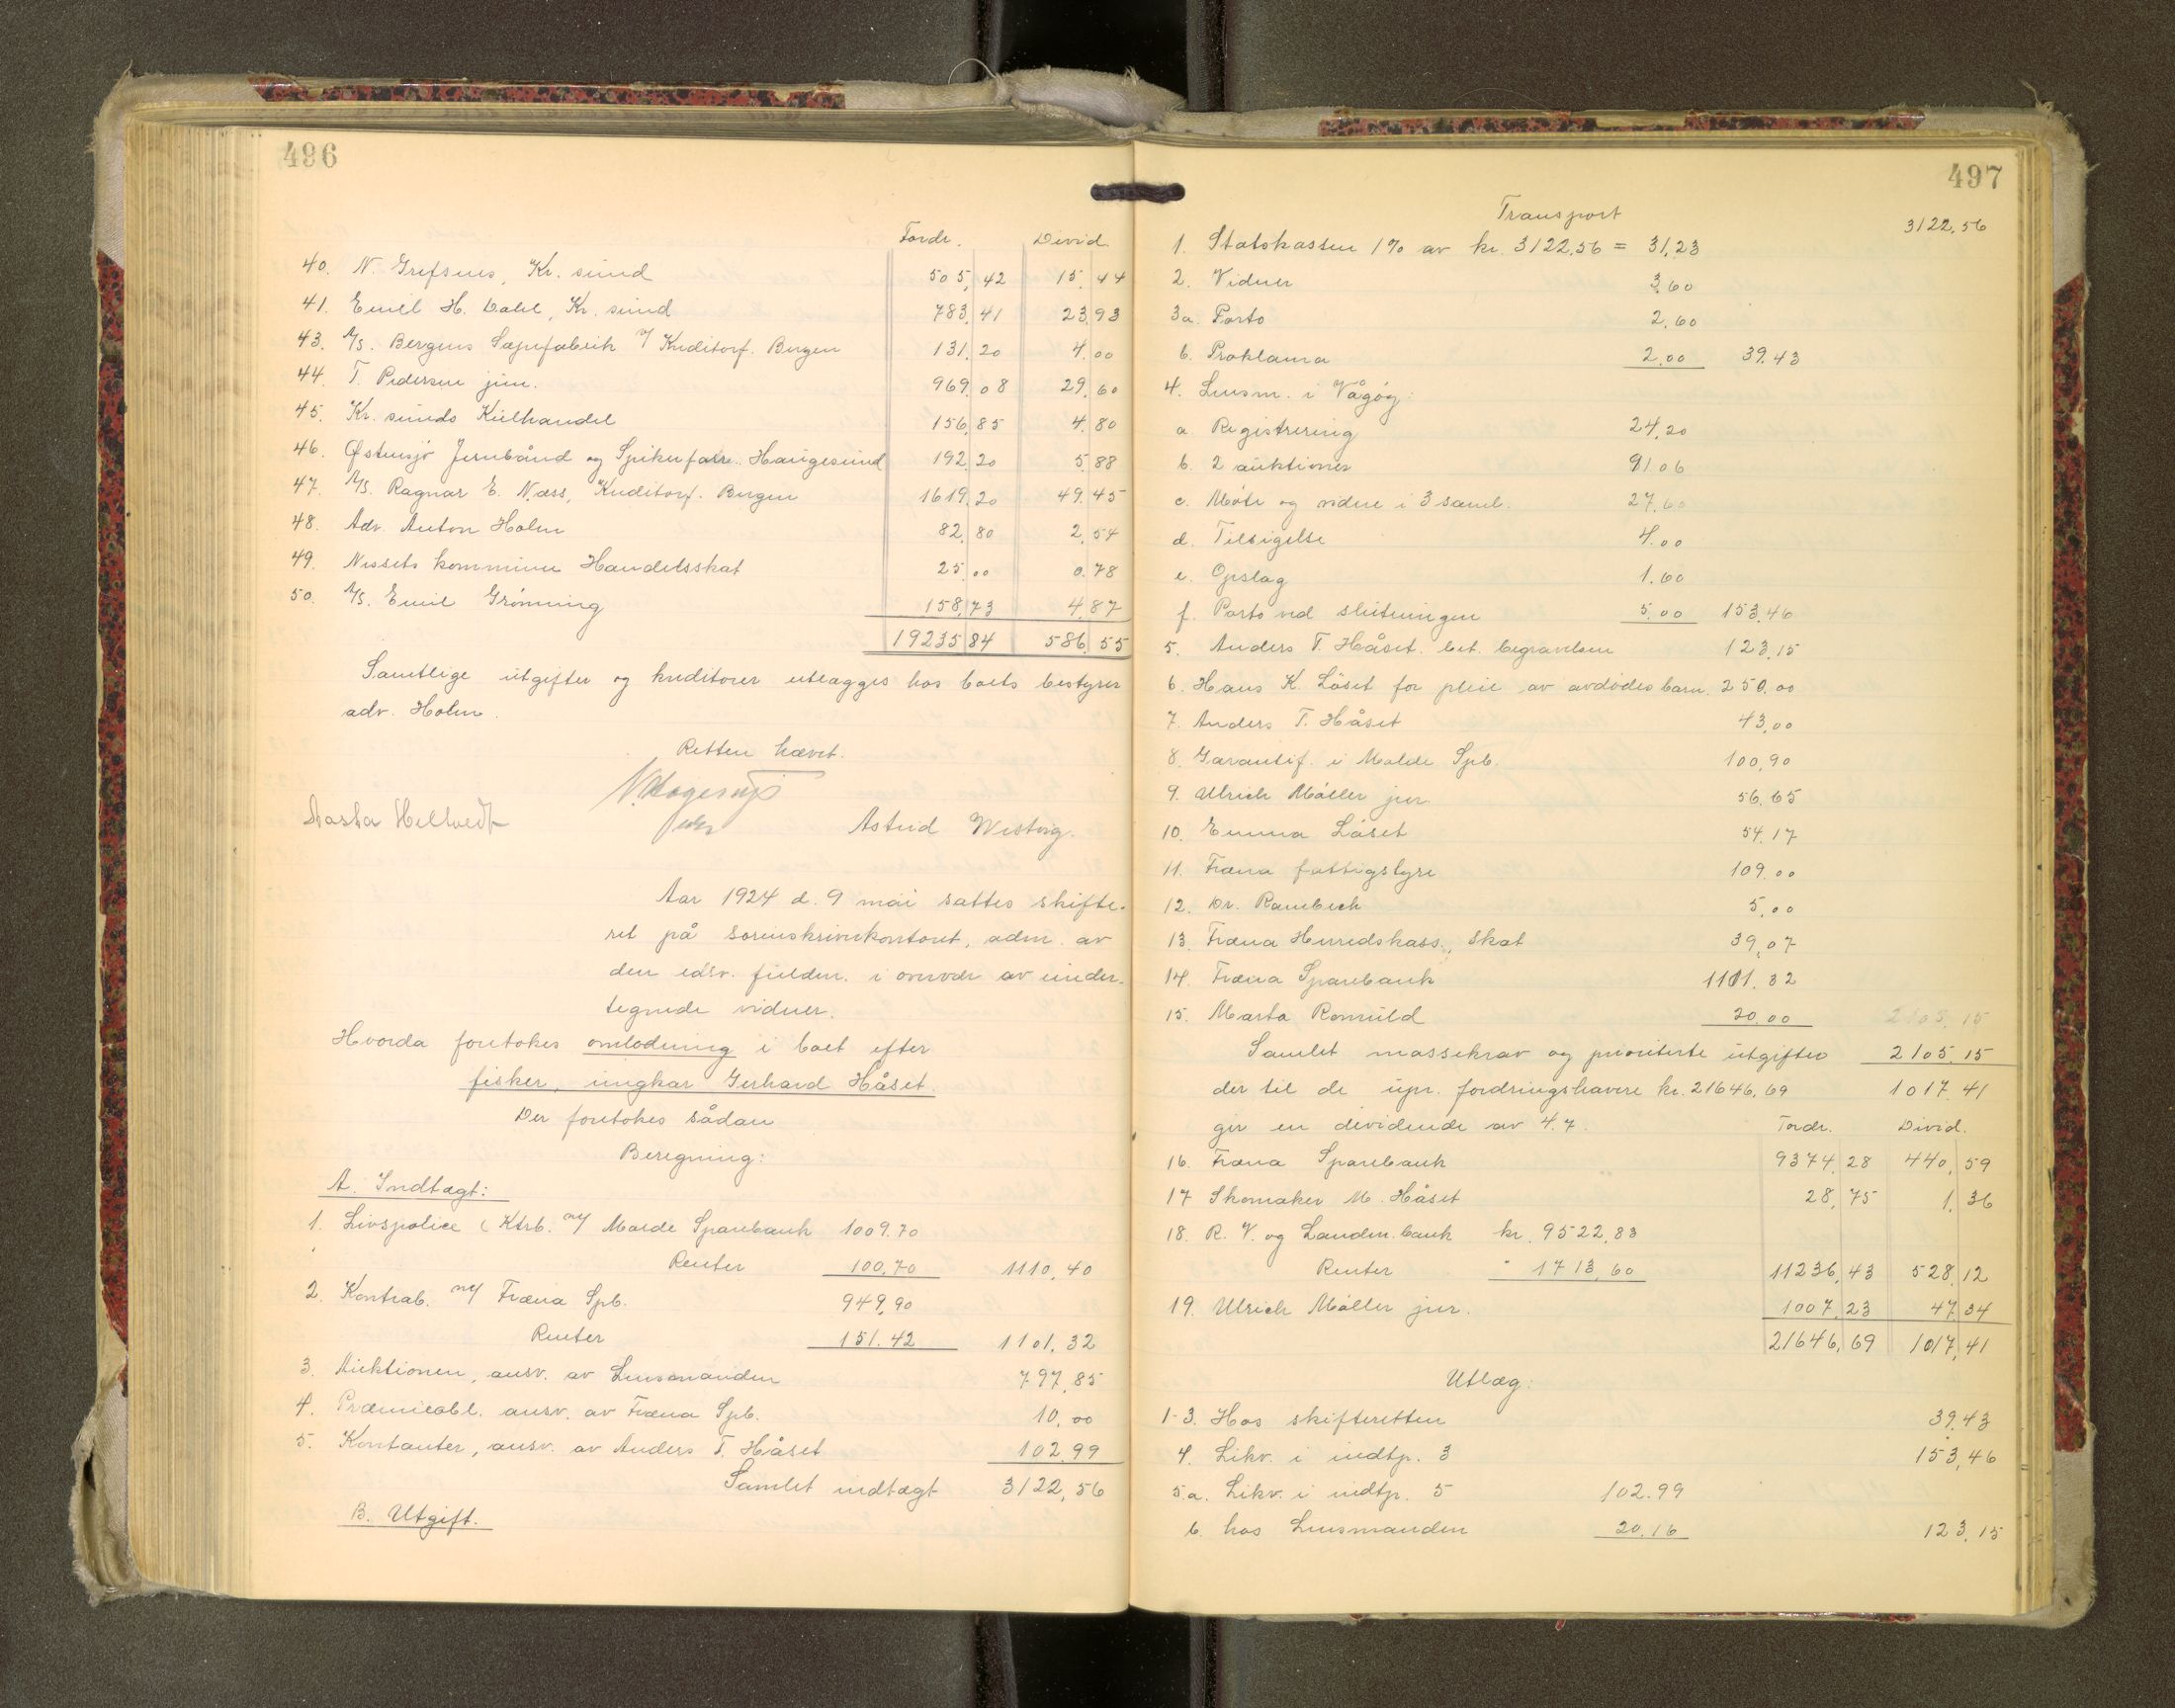 496
Fordr. Divid.
40. N. Grefsnes, Kr. sund 505,42 15,44
41. Emil H. Dahl, Kr. sund 783,41 23,93
43. A/S. Bergens Sæpefabrik v/ Kreditorf. Bergen 131,20 4,00
44. T. Pedersen jun. 969,08 29,60
45. Kr. sunds Kulhandel 156,85 4,80
46. Østensjø Jernbånd og Spikerfabr. Haugesund 192,20 5,88
47. A/S. Ragnar E. Næss, Kreditorf. Bergen 1619,20 49,45
48. Adv. Anton Holm 82,80 2,54
49. Nessets kommune Handelsskat 25,00 0,78
50. A/S. Emil Grønning 158,73 4,87
19235,84 586,55
Samtlige utgifter og kreditorer utlægges hos boets bestyrer
adv. Holm.
Retten hævet.
Aasta Helseth Astrid Westvig.
Aar 1924 d. 9 mai sattes skifte-
ret på sorenskriverkontoret, adm. av
den edsv. fuldm. i overvær av under-
tegnede vidner.
Hvorda foretokes omlodning i boet efter
fisker, ungkar Gerhard Håset.
Der foretokes sådan
Beregning:
A. Indtægt:
1. Livspolice (Ktrb. m/ Molde Sparebank 1009.70
Renter 100,70 1110,40
2. Kontrab. m/ Fræna Spb. 949,90
Renter 151.42 1101,32
3. Auktionen, ansv. av Lensmanden 797,85
4. Præmieobl. ansv. av Fræna Spb. 10,00
5. Kontanter, ansv. av Anders T. Håset 102,99
Samlet indtægt 3122,56
B. Utgift.
497
Transport 3122,56
1. Statskassen 1% av kr. 3122,56 = 31,23
2. Vidner 3,60
3a. Porto 2,60
b. Proklama 2,00 39,43
4. Lensm. i Vågøy:
a. Registrering 24,20
b. 2 auktioner 91 06
c. Møte og vidne i 3 saml. 27,60
d. Tilsigelse 4,00
e. Opslag 1.60
f. Porto ved slutningen 5,00 153,46
5. Anders T. Håset. bet. begravelsen 123,15
6. Hans K. Låset for pleie av avdødes barn. 250,00
7. Anders T. Håset 43,00
8. Garantif. i Molde Spb. 100,90
9. Ulrich Møller jur. 56,65
10. Emma Låset 54,17
11. Fræna fattigstyre 109,00
12. Dr. Rambech 5,00
13. Fræna Herredskass., skat 39,07
14. Fræna Sparebank 1101.32
15. Marta Romuld 20,00 2105,15
Samlet massekrav og prioriterte utgifter 2105,15
der til de upr. fordringshavere kr. 21646,69 1017,41
gir en dividende av 4.7. Fordr. Divid.
16. Fræna Sparebank 9374,28 440,59
17 Skomaker M. Håset 28,75 1,36
18. R. V. og Landm. bank kr. 9522,83
Renter " 1713,60 11236,43 528,12
19. Ulrich Møller jur. 1007,23 47,34
21646,69 1017,41
Utlæg:
1-3. Hos skifteretten 39,43
4. Likv. i indtp. 3 153,46
5.a. Likv. i indtp. 5 102.99
b. hos Lensmanden 20,16 123,15